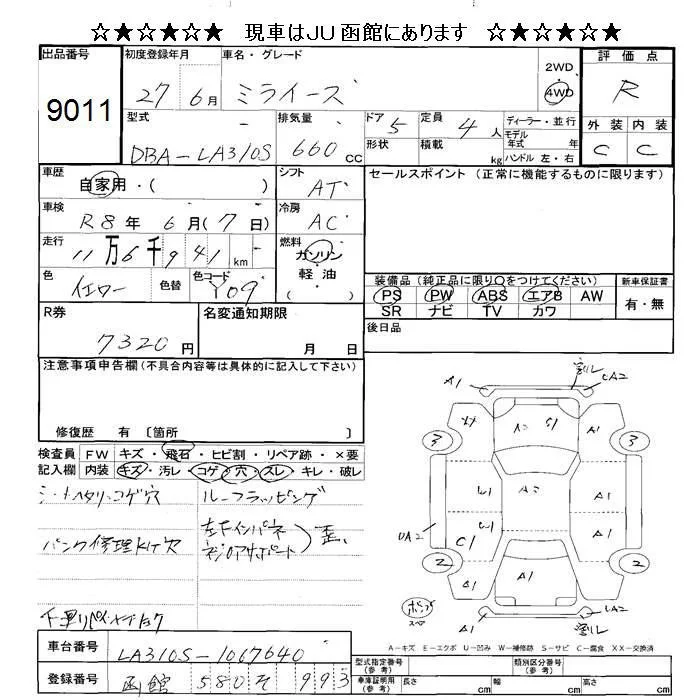 ☆★☆★☆ 現車はJU函館にあります ☆★☆★☆
出品番号 9011
初度登録年月 27 6月
車名・グレード ミライース
2WD
4WD
評価点 R
型式 DBA-LA310S
排気量 660 CC
ドア 5
形状
定員 4 人
積載 kg
ディーラー・並行
モデル年式 年
ハンドル 左・右
外装 内装
C C
車歴 自家用・( )
シフト AT
セールスポイント(正常に機能するものに限ります)
車検 R8年 6月(7日)
冷房 AC
走行 11万6千941km
燃料 ガソリン
軽油
( )
色 イエロー 色替 色コード Y09
装備品(純正品に限り○をつけてください)
PS PW ABS エアB AW
SR ナビ TV カワ
新車保証書
有・無
R券 7320円
名変通知期限 月 日
後日品
注意事項申告欄(不具合内容等は具体的に記入して下さい)
修復歴 有 〔箇所 〕
検査員記入欄
FW キズ・飛石・ヒビ割・リペア跡・×要
内装 キズ・汚レ・コゲ・穴・スレ・キレ・破レ
シートヘタリ・コゲ穴
ルーフラッピング
パンク修理KIT欠
左Fインパネ
歪
A1 割レ UA2
A2 S1 A1
3 3
W1 A2 A1
UA2 C1 W1 A1
2 2
A1 A1 A1
スペア
UA2
割レ
A-キズ E-エクボ U-凹み W-補修跡 S-サビ C-腐食 XX-交換済
車台番号 LA310S-1067640
登録番号 函館 580 そ 993
型式指定番号(参考)
類別区分番号(参考)
車庫証明用(参考) 長さ cm 幅 cm 高さ cm